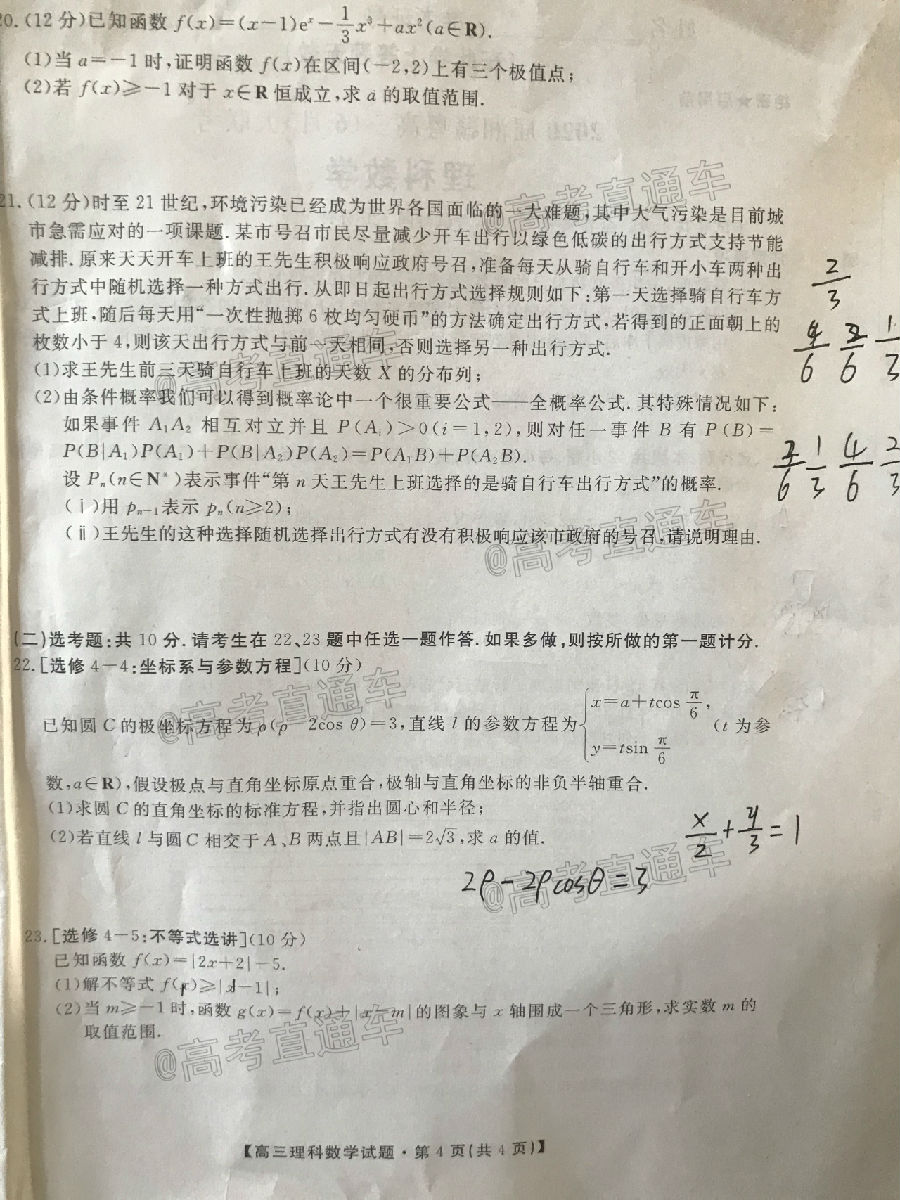 20.(12分)已知函数 f(x)=(x-1)eˣ-1/3x³+ax²(a∈R).
(1)当 a=-1 时,证明函数 f(x)在区间(-2,2)上有三个极值点;
(2)若 f(x)≥-1 对于 x∈R 恒成立,求 a 的取值范围.
理科数学
21.(12分)时至 21 世纪,环境污染已经成为世界各国面临的一大难题,其中大气污染是目前城
市急需应对的一项课题.某市号召市民尽量减少开车出行以绿色低碳的出行方式支持节能
减排.原来天天开车上班的王先生积极响应政府号召,准备每天从骑自行车和开小车两种出
行方式中随机选择一种方式出行.从即日起出行方式选择规则如下:第一天选择骑自行车方
式上班,随后每天用“一次性抛掷 6 枚均匀硬币”的方法确定出行方式,若得到的正面朝上的
枚数小于 4,则该天出行方式与前一天相同,否则选择另一种出行方式.
(1)求王先生前三天骑自行车上班的天数 X 的分布列;
(2)由条件概率我们可以得到概率论中一个很重要公式——全概率公式.其特殊情况如下:
如果事件 A₁A₂ 相互对立并且 P(Aᵢ)>0(i=1,2),则对任一事件 B 有 P(B)=
P(B|A₁)P(A₁)+P(B|A₂)P(A₂)=P(A₁B)+P(A₂B).
设 Pₙ(n∈N*)表示事件“第 n 天王先生上班选择的是骑自行车出行方式”的概率.
(ⅰ)用 pₙ₋₁表示 pₙ(n≥2);
(ⅱ)王先生的这种选择随机选择出行方式有没有积极响应该市政府的号召,请说明理由.
2/3
4/6 2/6 1/3
1/3 4/6 2/3
(二)选考题:共 10 分.请考生在 22、23 题中任选一题作答.如果多做,则按所做的第一题计分.
22.[选修 4-4:坐标系与参数方程](10 分)
已知圆 C 的极坐标方程为 ρ(ρ-2cos θ)=3,直线 l 的参数方程为{x=a+tcos π/6, y=tsin π/6 (t 为参
数,a∈R),假设极点与直角坐标原点重合,极轴与直角坐标的非负半轴重合.
(1)求圆 C 的直角坐标的标准方程,并指出圆心和半径;
(2)若直线 l 与圆 C 相交于 A、B 两点且|AB|=2√3,求 a 的值.
x/2+y/3=1
2ρ-2ρcosθ=3
23.[选修 4-5:不等式选讲](10 分)
已知函数 f(x)=|2x+2|-5.
(1)解不等式 f(x)≥|x-1|;
(2)当 m≥-1 时,函数 g(x)=f(x)+|x-m|的图象与 x 轴围成一个三角形,求实数 m 的
取值范围.
@高考直通车
@高考直通车
@高考直通车
@高考直通车
@高考直通车
@高考直通车
【高三理科数学试题·第 4 页(共 4 页)】